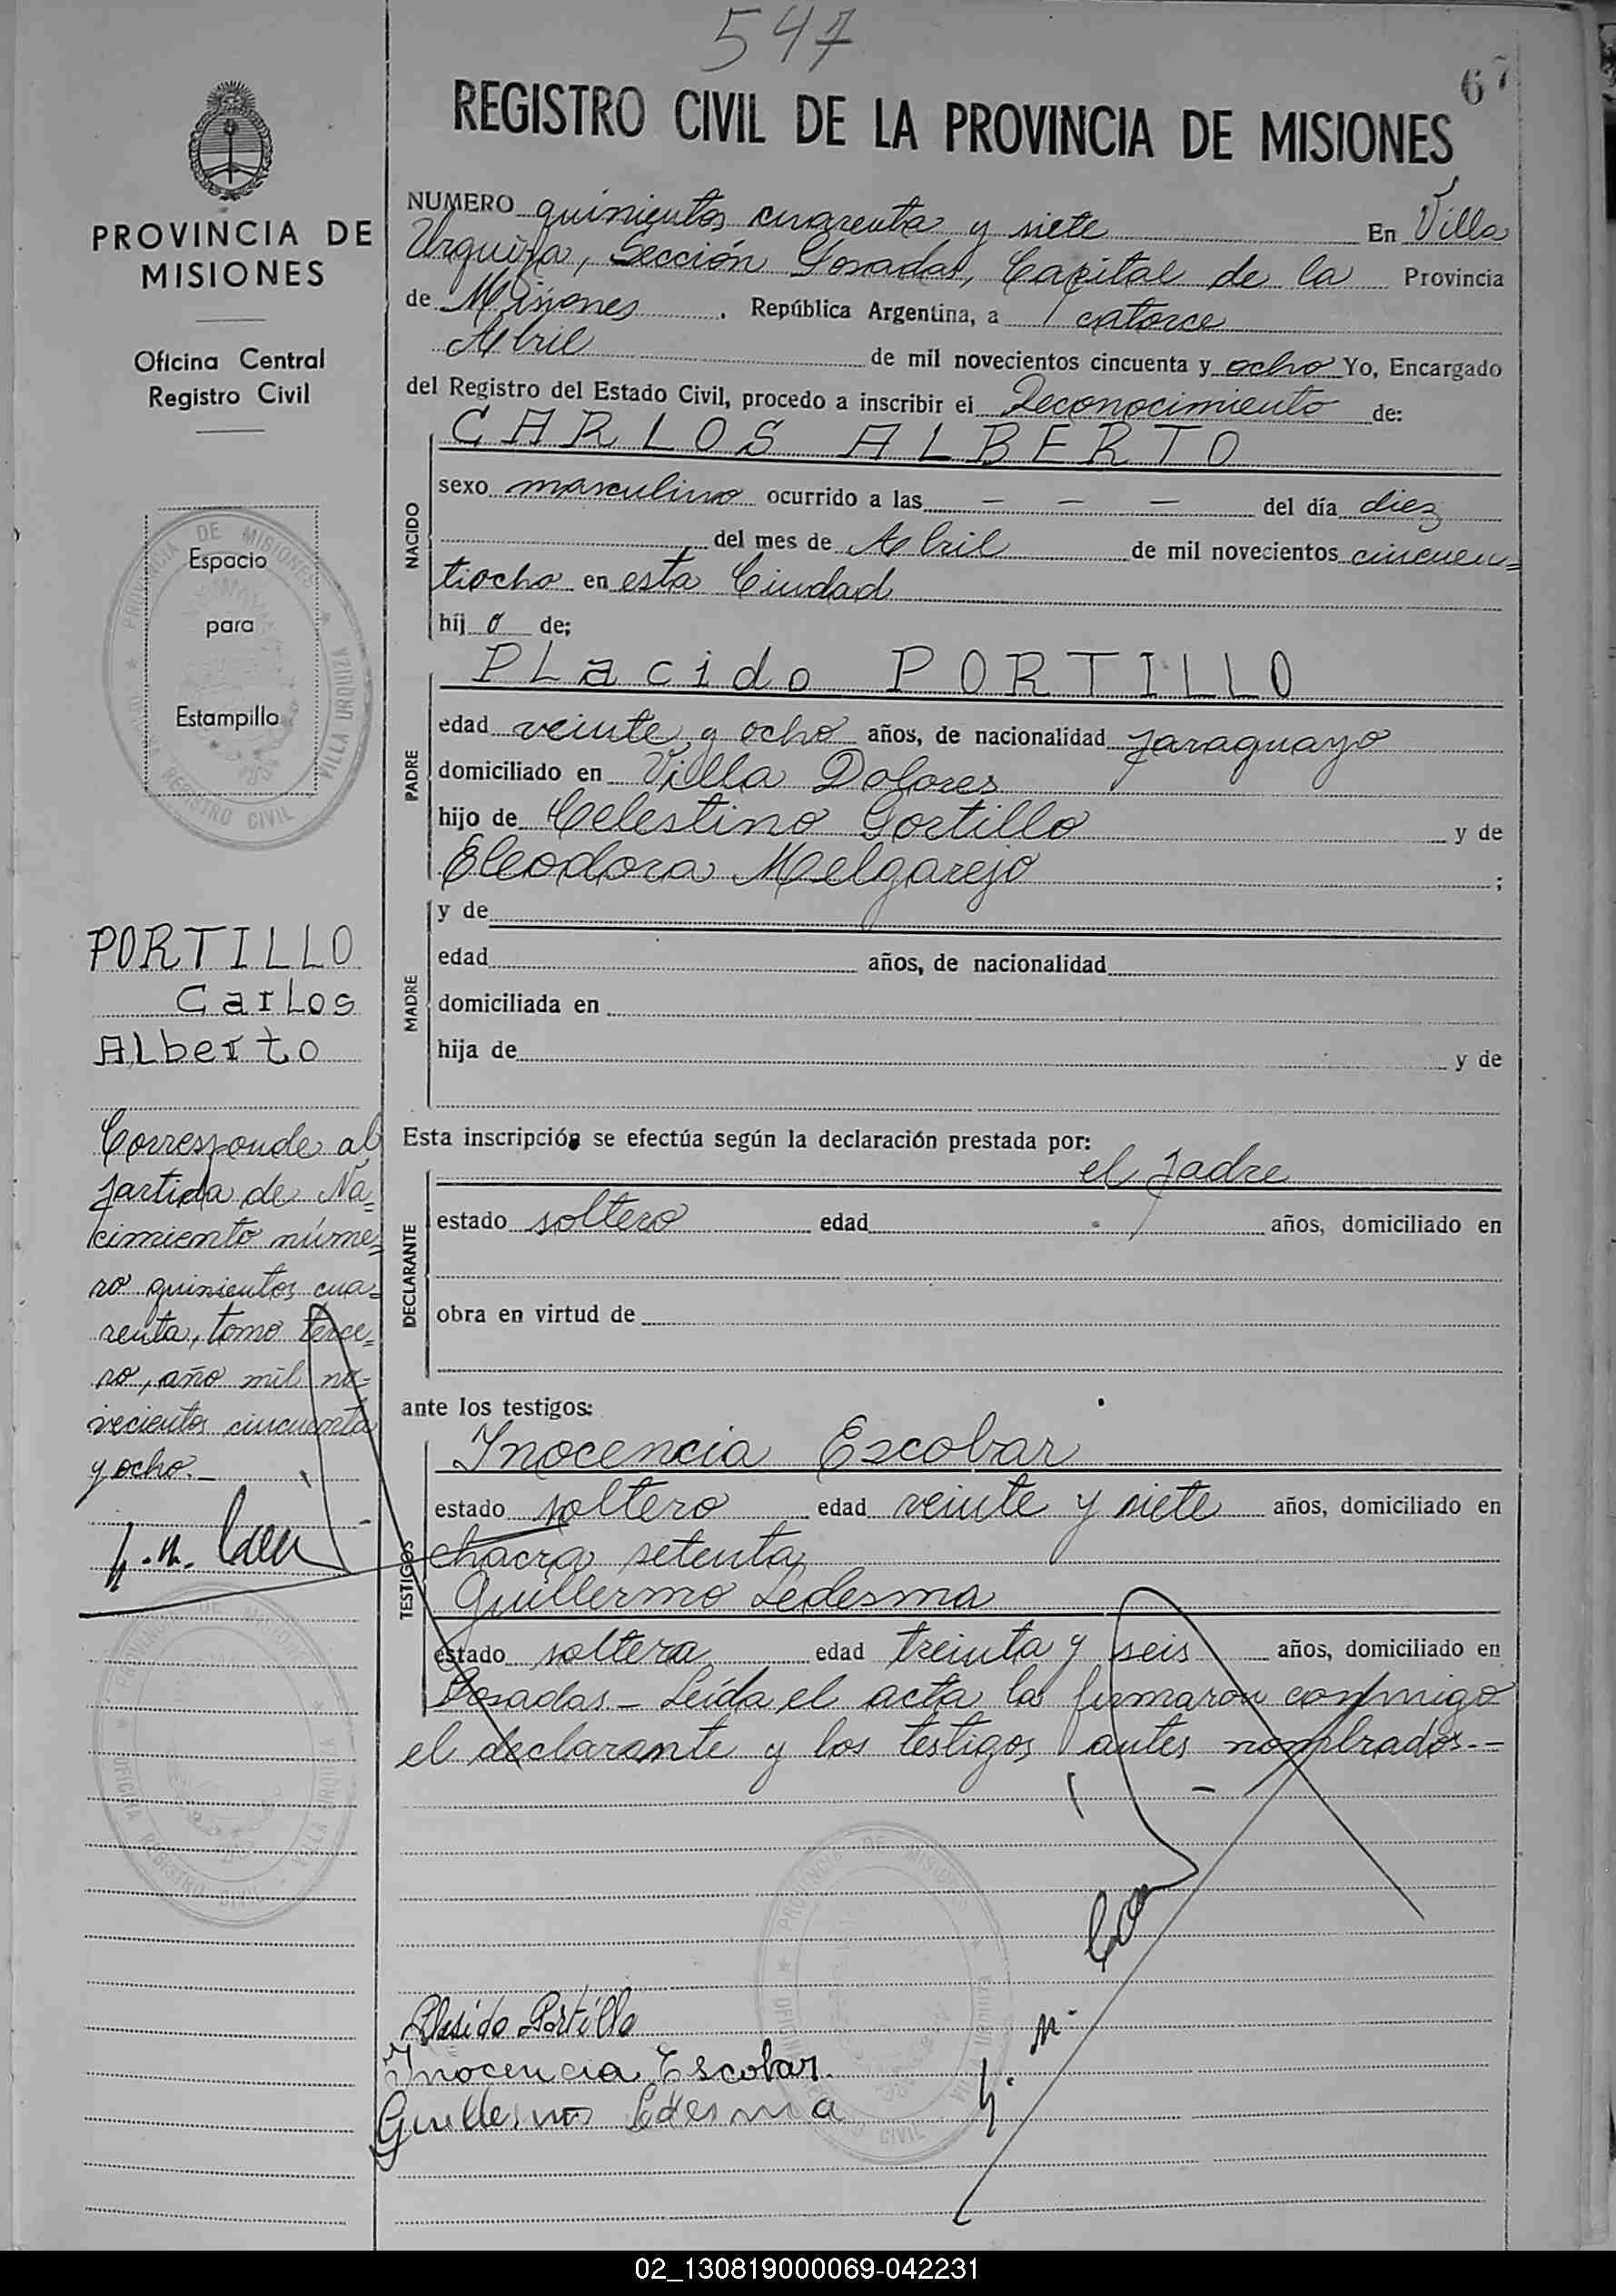 547
67
REGISTRO CIVIL DE LA PROVINCIA DE MISIONES
PROVINCIA DE
MISIONES
Oficina Central
Registro Civil
Espacio
para
Estampilla
PROVINCIA DE MISIONES
VILLA URQUIZA
REGISTRO CIVIL
NUMERO quinientos cuarenta y siete En Villa
Urquiza, Sección Posadas, Capital de la Provincia
de Misiones. República Argentina, a catorce
Abril de mil novecientos cincuenta y ocho Yo, Encargado
del Registro del Estado Civil, procedo a inscribir el Reconocimiento de:
NACIDO
CARLOS ALBERTO
sexo masculino ocurrido a las — — — del día diez
del mes de Abril de mil novecientos cincuen=
tiocho en esta Ciudad
hij o de;
PADRE
PLacido PORTILLO
edad veinte y ocho años, de nacionalidad paraguayo
domiciliado en Villa Dolores
hijo de Celestino Portillo y de
Eleodora Melgarejo ;
MADRE
y de
edad años, de nacionalidad
domiciliada en
hija de y de
Esta inscripción se efectúa según la declaración prestada por:
el padre
DECLARANTE
estado soltero edad años, domiciliado en
obra en virtud de
ante los testigos:
TESTIGOS
Inocencia Escobar
estado soltero edad veinte y siete años, domiciliado en
chacra setenta
Guillermo Ledesma
estado soltera edad treinta y seis años, domiciliado en
Posadas.- Leída el acta la firmaron conmigo
el declarante y los testigos antes nombrados.-
PORTILLO
Carlos
ALberto
Corresponde al
partida de Na=
cimiento núme=
ro quinientos cua=
renta, tomo terce=
ro, año mil no=
vecientos cincuenta
y ocho.-
PROVINCIA DE MISIONES
OFICINA REGISTRO CIVIL
VILLA URQUIZA
PROVINCIA DE MISIONES
Plasido Portillo
Inocencia Escobar.
Guillermo Ledesma
02_130819000069-042231